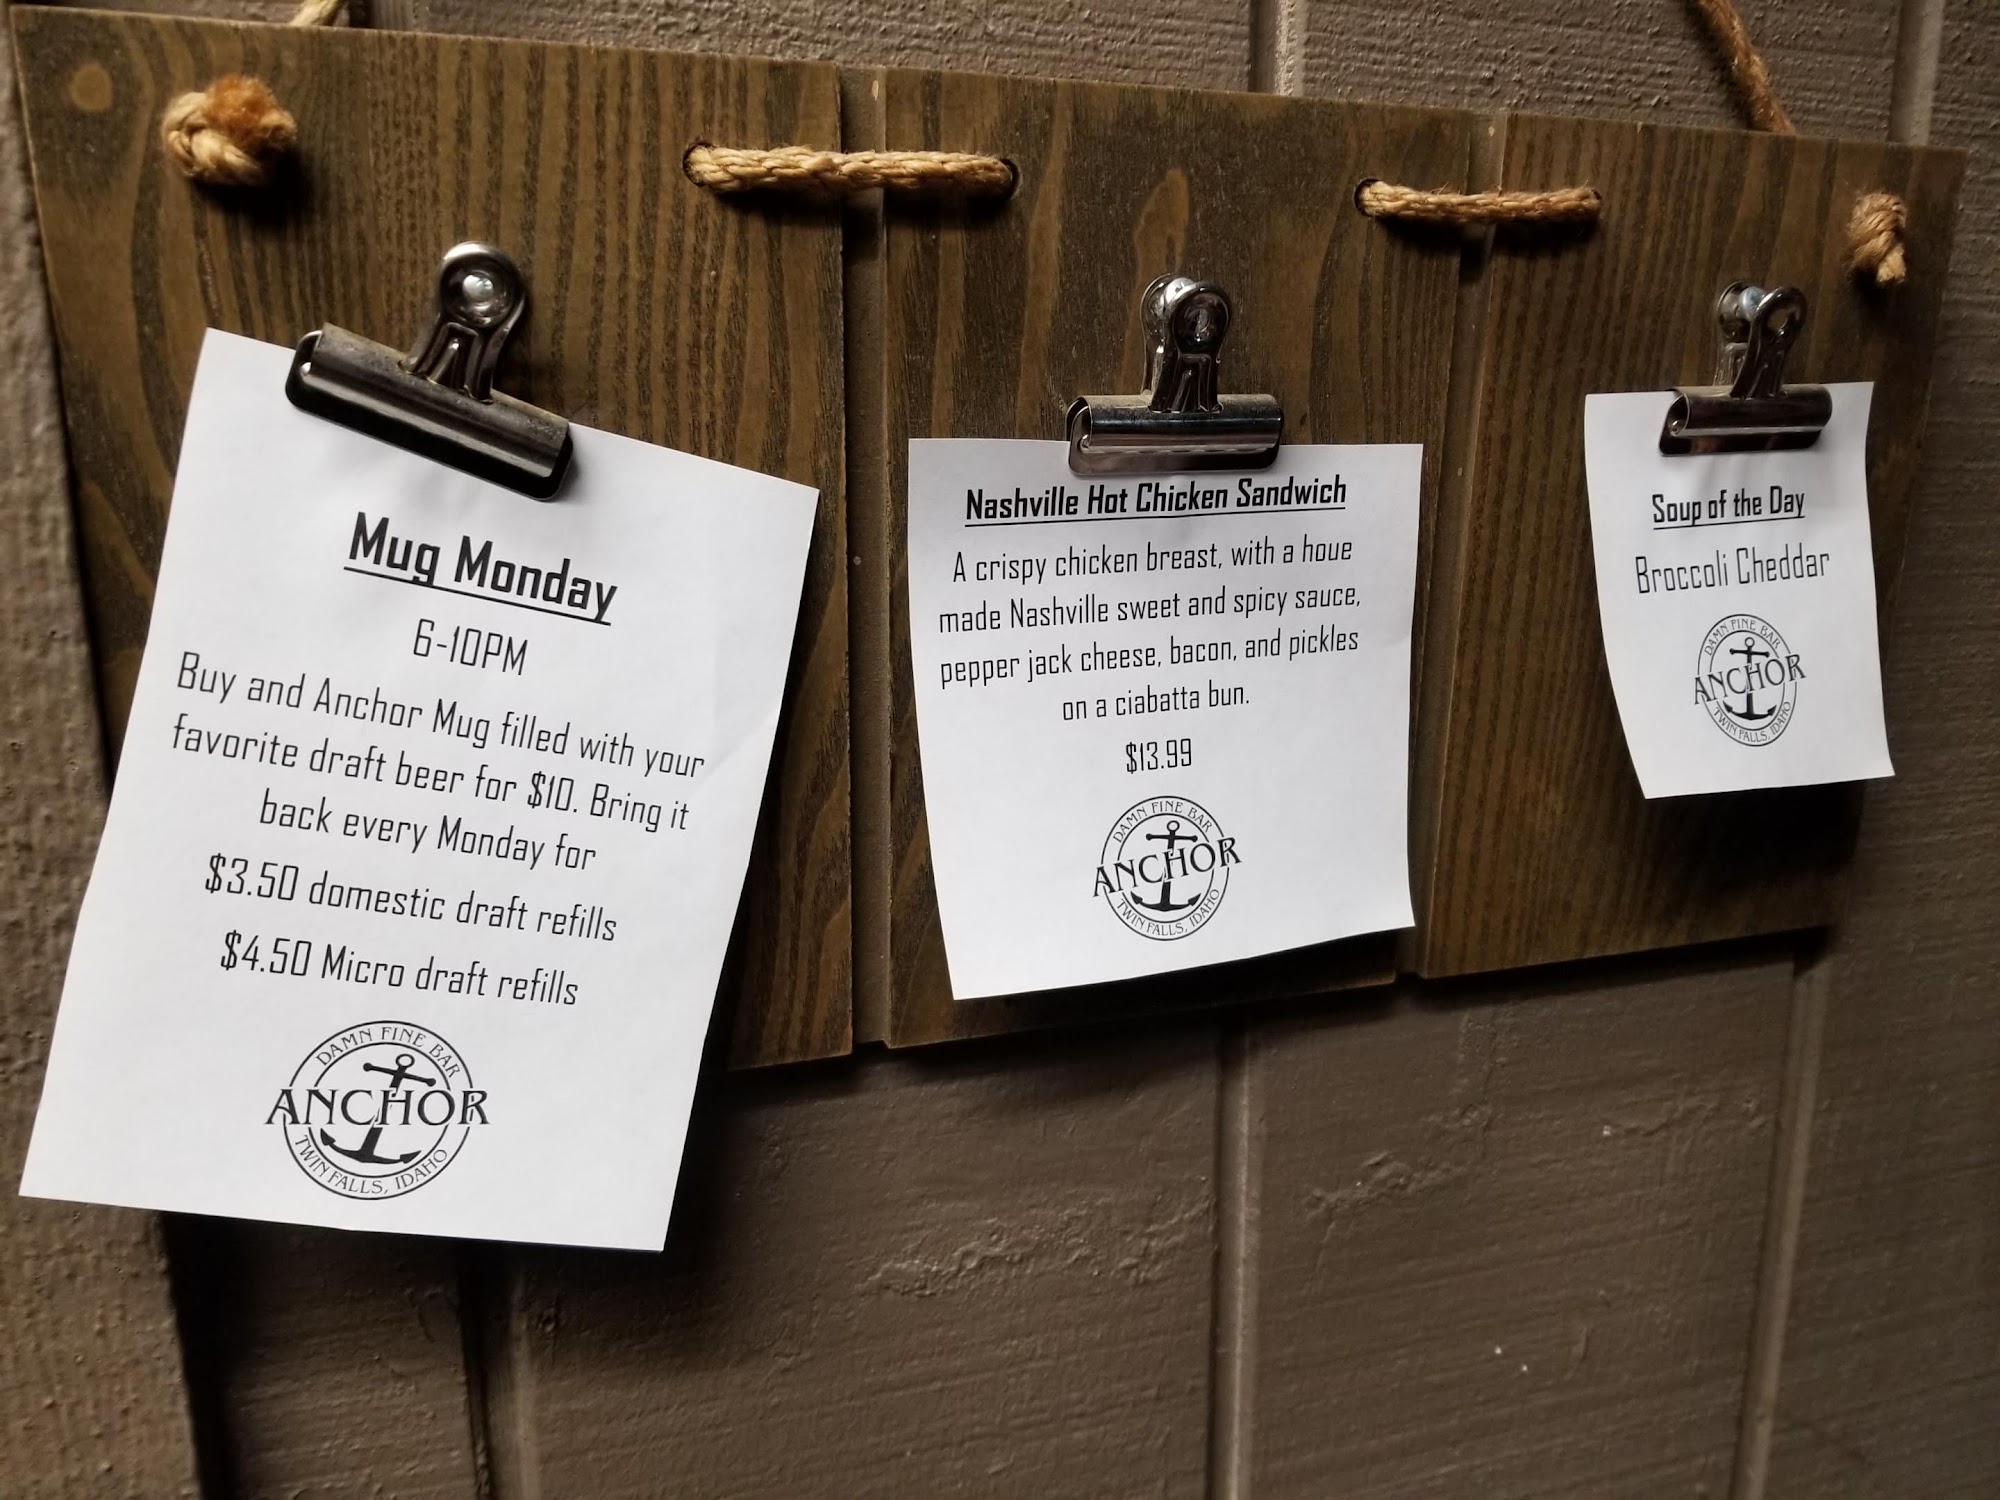 Mug Monday
6-10PM
Buy and Anchor Mug filled with your
favorite draft beer for $10. Bring it
back every Monday for
$3.50 domestic draft refills
$4.50 Micro draft refills
DAMN FINE BAR
ANCHOR
TWIN FALLS, IDAHO
Nashville Hot Chicken Sandwich
A crispy chicken breast, with a houe
made Nashville sweet and spicy sauce,
pepper jack cheese, bacon, and pickles
on a ciabatta bun.
$13.99
DAMN FINE BAR
ANCHOR
TWIN FALLS, IDAHO
Soup of the Day
Broccoli Cheddar
DAMN FINE BAR
ANCHOR
TWIN FALLS, IDAHO